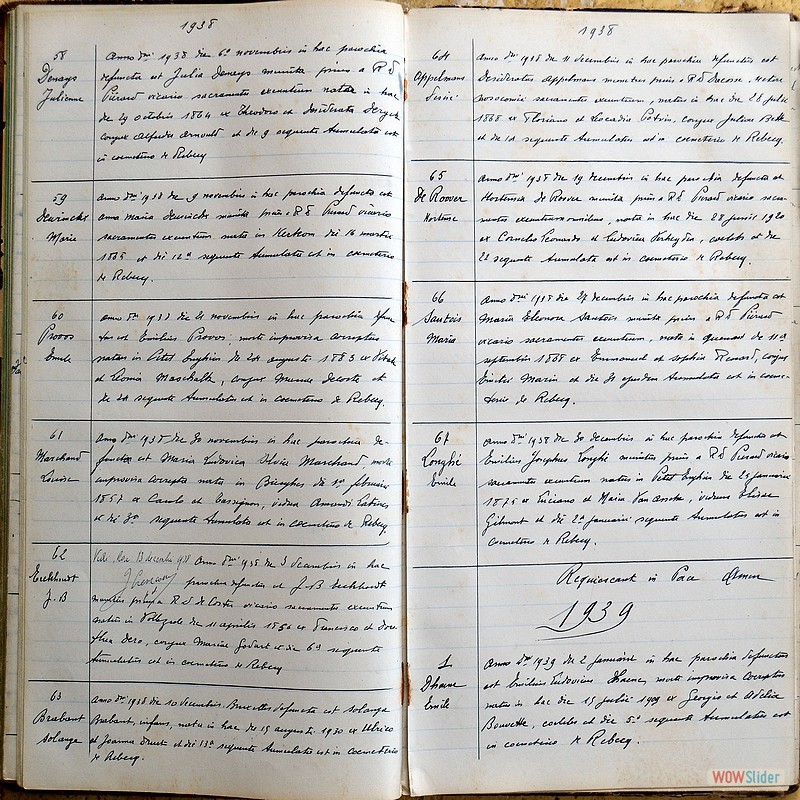 1938
58
Denays
Julienne
Anno Dni 1938 die 6a novembris in hac parochia
defuncta est Julia Denays munita prius a R D
Pierard vicario sacramentis exeuntium nata in hac
die 29 octobris 1864 ex Theodoro et Desiderata
conjux Alfredi Arnould et die 9 sequente tumulata est
in coemeterio de Rebecq
59
Dewinckt
Marie
Anno Dni 1938 die 9 novembris in hac parochia defuncta est
Anna Maria munita prius a R D Pierard vicario
sacramentis exeuntium nata in die 16 martii
et die 12a sequente tumulata est in coemeterio
de Rebecq.
60
Provos
Emile
Anno Dni 1938 die 21 novembris in hac parochia defunc
tus est Emilius Provos, morte improvisa correptus
natus in Petit Enghien die 24a augusti 1883 ex
et Leonia conjux Decoste et
die 24 sequente tumulatus est in coemeterio de Rebecq.
61
Marchand
Louise
Anno Dni 1938 die 30 novembris in hac parochia de-
functa est Maria Ludovica Marchand, morte
improvisa correpta nata in Bierghes die 1a februarii
1857 ex Carolo et vidua Amandi
et die 3a sequente tumulata est in coemeterio de Rebecq.
62
Eeckhoudt
J. B
Vidi, die 13 decembris 1938 Anno Dni 1938 die 3 decembris in hac
parochia defunctus est J-B Eeckhoudt
munitus prius a R D De Coster vicario sacramentis exeuntium
natus in die 11 aprilis ex Francisco et Doro
thea conjux Mariae Godart et die 6a sequente
tumulatus est in coemeterio de Rebecq
63
Brabant
Solange
Anno Dni 1938 die 10 decembris Bruxelles defuncta est Solange
Brabant, infans, nata in hac die 15 augusti 1930 ex Ulrico
et Joanna et die 13a sequente tumulata est in coemeterio
de Rebecq.
1938
64
Appelmans
Désiré
Anno Dni 1938 die 11 decembris in hac parochia defunctus est
Desideratus Appelmans munitus prius a R D
nosocomii sacramentis exeuntium, natus in hac die 26 julii
1868 ex Floriano et Leocadia Potvin, conjux Juliae
et die 14 sequente tumulatus est in coemeterio de Rebecq.
65
De Roover
Hortense
Anno Dni 1938 die 19 decembris in hac parochia defuncta est
Hortensia De Roover munita prius a R D Pierard vicario sacra-
mentis exeuntium omnibus, nata in hac die 28 junii 1920
ex Cornelio Leonardo et Ludovica Verheyden, coelebs et die
22 sequente tumulata est in coemeterio de Rebecq.
66
Sautois
Maria
Anno Dni 1938 die 27 decembris in hac parochia defuncta est
Maria Eleonora Sautois munita prius a R D Pierard
vicario sacramentis exeuntium, nata in Quenast die 11a
septembris 1868 ex Emmanuel et Sophia conjux
Emilii Marin et die 31 ejusdem tumulata est in coeme-
terio de Rebecq.
67
Longhé
Emile
Anno Dni 1938 die 30 decembris in hac parochia defunctus est
Emilius Josephus Longhé munitus prius a R D Pierard vicario
sacramentis exeuntium natus in Petit Enghien die 23 januarii
1875 ex Luciano et Maria Van Assche, viduus Elisae
Gilmont et die 2a januarii sequente tumulatus est in
coemeterio de Rebecq.
Requiescant in Pace Amen
1939
1
Dhaene
Emile
Anno Dni 1939 die 2 januarii in hac parochia defunctus
est Emilius Ludovicus Dhaene, morte improvisa correptus
natus in hac die 15 julii 1909 ex Georgio et Adelia
Bouvette, coelebs et die 5a sequente tumulatus est
in coemeterio de Rebecq.
WOWSlider